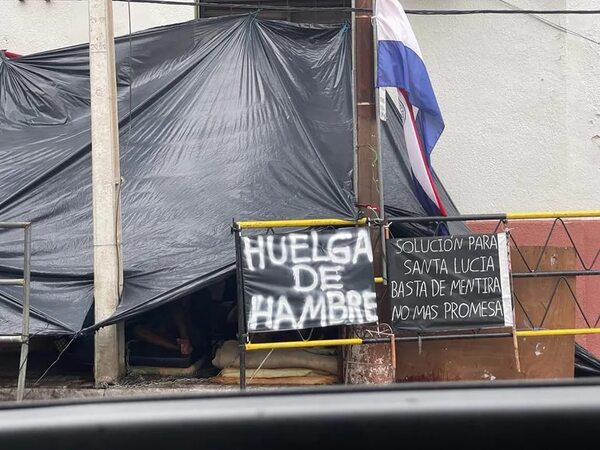 HUELGA
DE
HAMBRE
SOLUCIÓN PARA
SANTA LUCIA
BASTA DE MENTIRA
NO MAS PROMESA